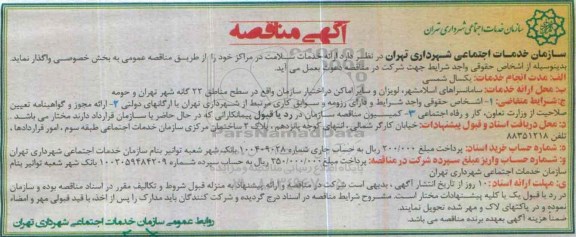 سازمان خدمات اجتماعی شهرداری تهران
آگهی مناقصه
سازمان خدمات اجتماعی شهرداری تهران در نظر دارد ارائه خدمات سلامت در مراکز خود را از طریق مناقصه عمومی به بخش خصوصی واگذار نماید.
بدینوسیله از اشخاص حقوقی واجد شرایط جهت شرکت در مناقصه دعوت بعمل می آید.
الف: مدت انجام خدمات: یکسال شمسی
ب: محل ارائه خدمات: سامانسراهای اسلامشهر، لویزان و سایر اماکن دراختیار سازمان واقع در سطح مناطق ۲۲ گانه شهر تهران و حومه
ج: شرایط متقاضی: ۱- اشخاص حقوقی واجد شرایط و دارای رزومه و سوابق کاری مرتبط از شهرداری تهران یا ارگانهای دولتی ۲- ارائه مجوز و گواهینامه تعیین
صلاحیت از وزارت تعاون، کار و رفاه اجتماعی ۳- کمیسیون مناقصه سازمان در رد یا قبول پیمانکارانی که در حال حاضر با سازمان قرارداد دارند مختار می باشد.
د: محل دریافت اسناد و قبول پیشنهادات: خیابان کارگر شمالی، انتهای کوچه یازدهم، پلاک ۲ ساختمان مرکزی سازمان خدمات اجتماعی طبقه سوم، امور قراردادها،
تلفن ۸۸۳۵۱۲۱۸
ه: شماره حساب خرید اسناد: پرداخت مبلغ ۲۰۰/۰۰۰ ریال به حساب جاری شماره ۱۰۰۴۰۹۰۲۸ بانک شهر شعبه توانیر بنام سازمان خدمات اجتماعی شهرداری تهران
و: شماره حساب واریز مبلغ سپرده شرکت در مناقصه: پرداخت مبلغ ۲۵۰/۰۰۰/۰۰۰ ریال به حساب سپرده شماره ۱۰۰۲۰۵۹۴۸۴۲۰۹ بانک شهر شعبه توانیر بنام
سازمان خدمات اجتماعی شهرداری تهران
ی: مهلت ارائه اسناد: ۱۰ روز از تاریخ انتشار آگهی، بدیهی است شرکت در مناقصه و ارائه پیشنهاد به منزله قبول شروط و تکالیف مقرر در اسناد مناقصه بوده و سازمان
در رد یا قبول یک یا کلیه پیشنهادات مختار است. مشروح شرایط مناقصه در اسناد درج گردیده و شرکت کنندگان باید مدارک را پس از اخذ، با قید قبولی مهر و امضاء
نموده و در پاکتهای لاک و مهر شده تحویل نمایند.
ضمناً هزینه آگهی بعهده برنده مناقصه می باشد.
روابط عمومی سازمان خدمات اجتماعی شهرداری تهران